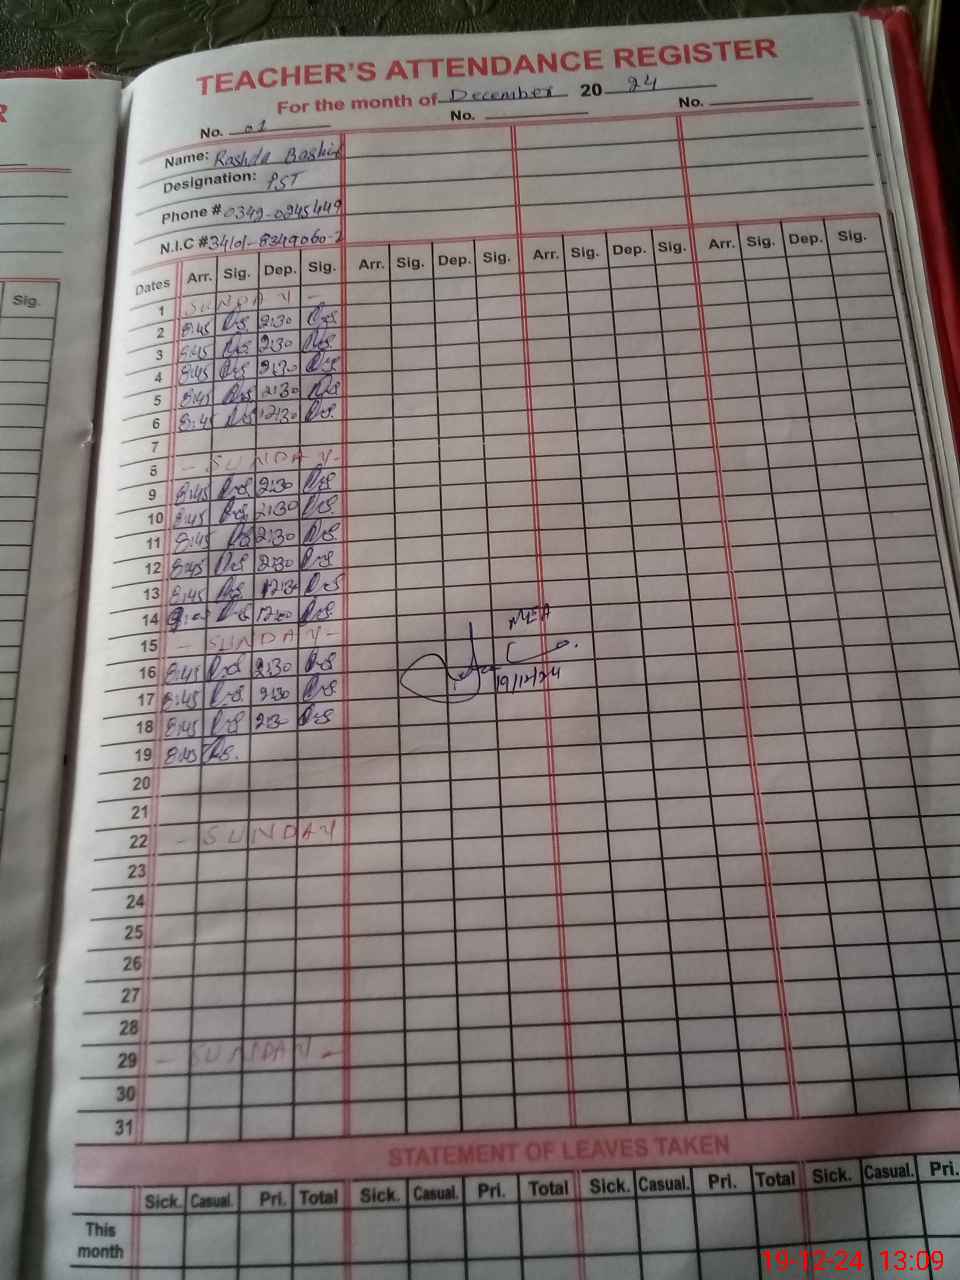 R
Sig.
TEACHER'S ATTENDANCE REGISTER
For the month of December 20 24
No. 01 No. No.
Name: Rashda Bashir
Designation: PST
Phone # 0349-0245449
N.I.C # 34101-8349060-2
Dates Arr. Sig. Dep. Sig. Arr. Sig. Dep. Sig. Arr. Sig. Dep. Sig. Arr. Sig. Dep. Sig.
1 SUNDAY -
2 8:45 2:30
3 8:45 2:30
4 8:45 2:30
5 8:45 2:30
6 8:45 12:30
7
8 - SUNDAY -
9 8:45 2:30
10 8:45 2:30
11 8:45 2:30
12 8:45 2:30
13 8:45 12:30
14 9:00 12:00
15 - SUNDAY -
MEA
16 8:45 2:30
19/12/24
17 8:45 2:30
18 8:45 2:30
19 8:45
20
21
22 - SUNDAY
23
24
25
26
27
28
29 - SUNDAY -
30
31
STATEMENT OF LEAVES TAKEN
Sick. Casual. Pri. Total Sick. Casual. Pri. Total Sick. Casual. Pri. Total Sick. Casual. Pri.
This month
19-12-24 13:09